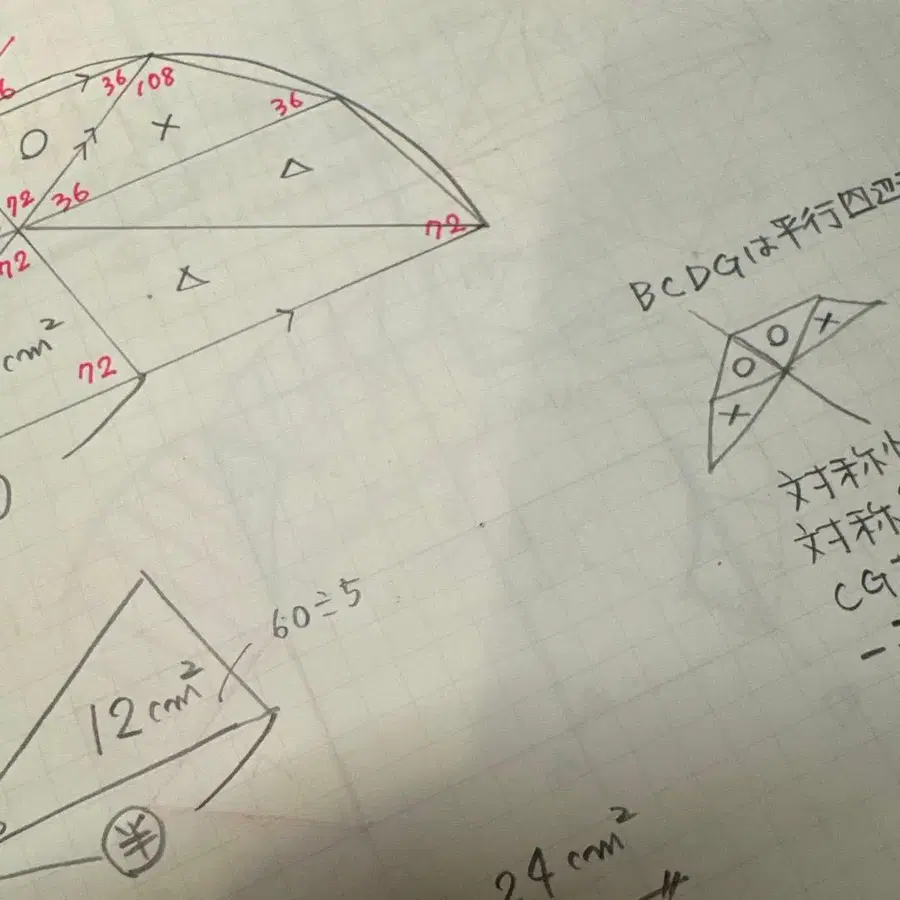 36
108
36
○
×
△
72
36
72
72
△
cm²
72
BCDGは平行四辺
○
○
×
×
対称
対称
CG
60÷5
12cm²
半
24cm²